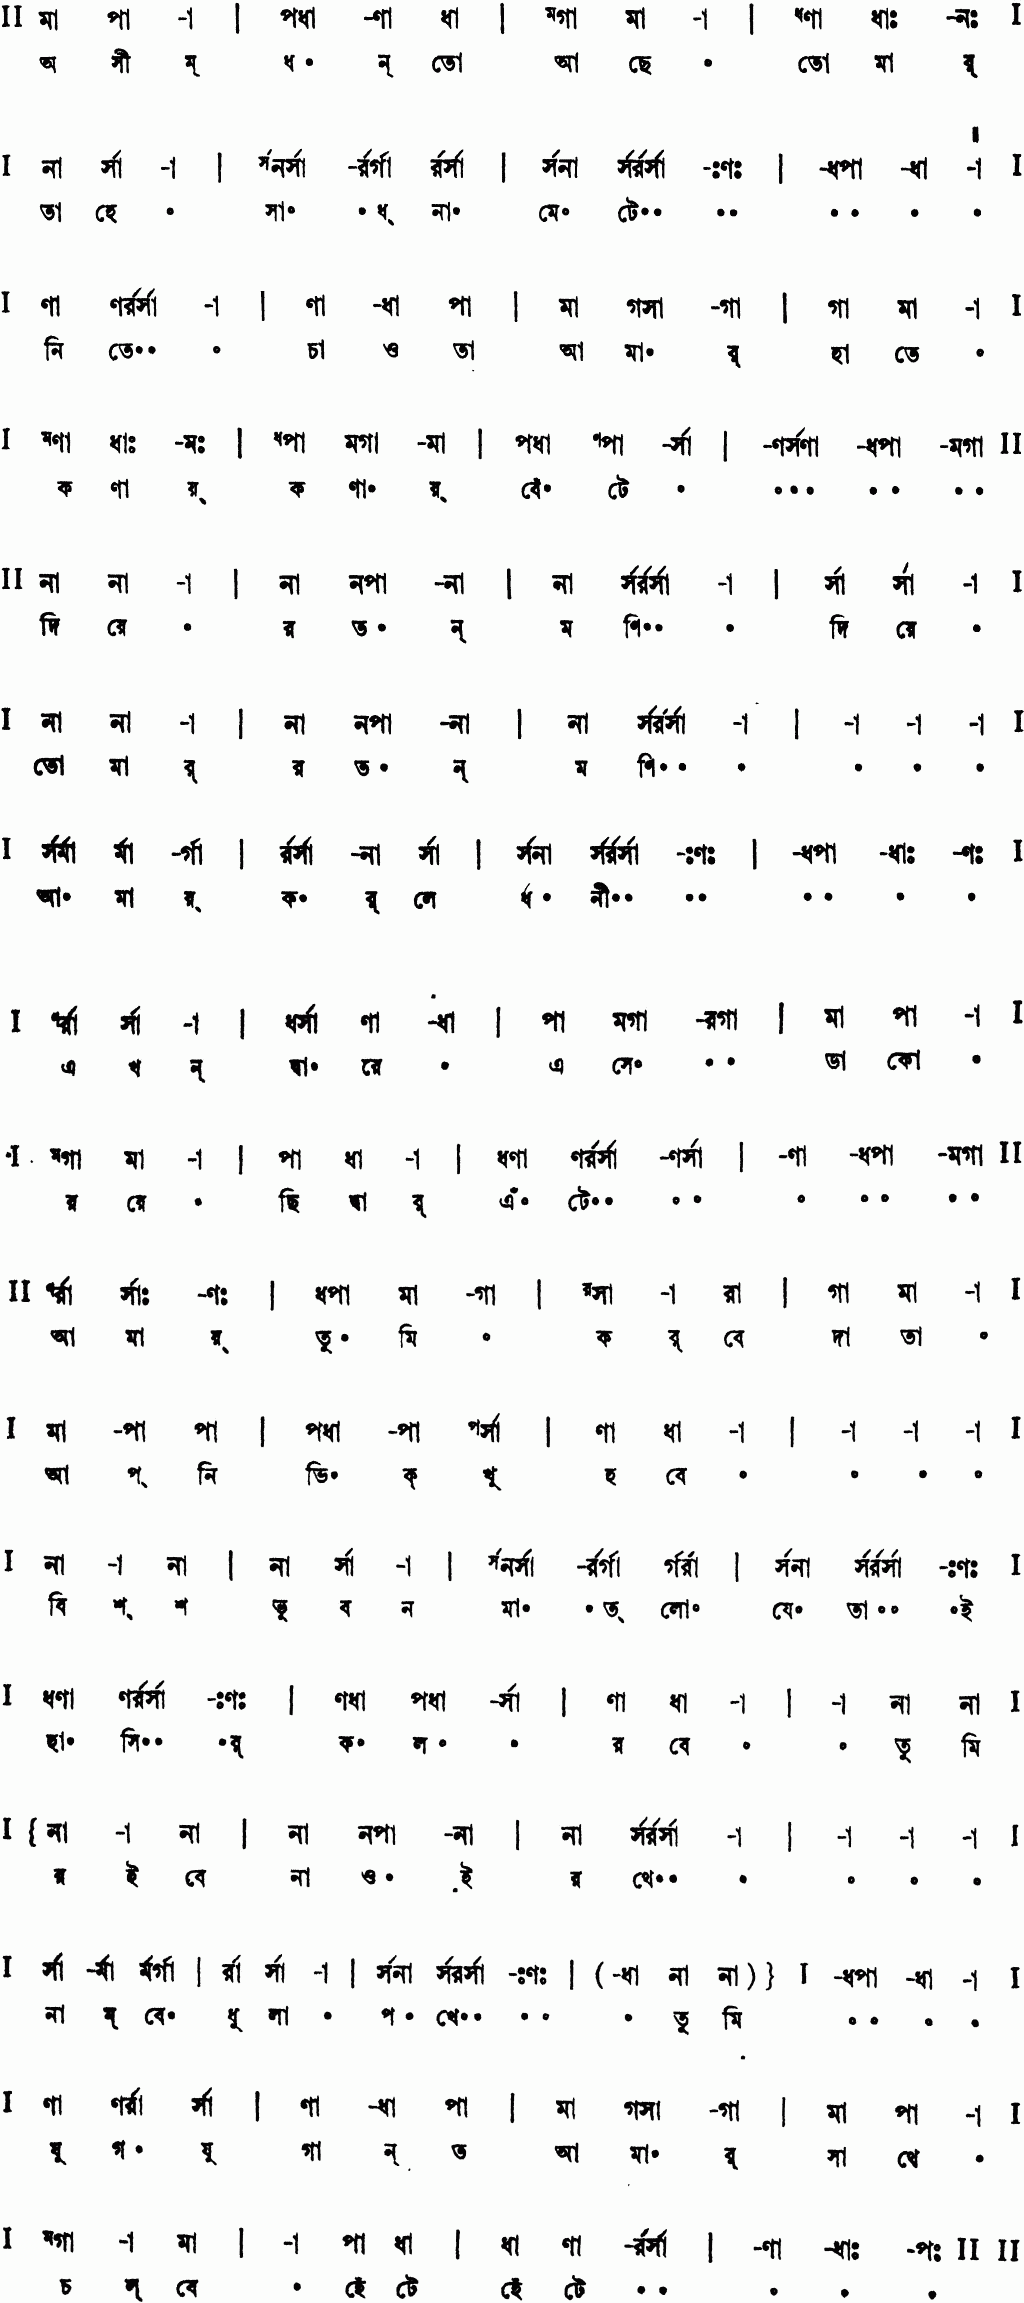 II মা পা -া | পধা -ণা ধা | ᵐগা মা -া | ᵖণা ধাঃ -নঃ I
অ সী ম্ ধ • ন্ তো আ ছে • তো মা র্
I না র্সা -া | র্সনর্সা -র্রর্গা র্রর্সা | র্সনা র্সর্রর্সা -ঃণঃ | -ধপা -ধা -া I
তা হে • সা• • ধ্ না• মে• টে•• •• •• • •
I ণা ণর্রর্সা -া | ণা -ধা পা | মা গসা -গা | গা মা -া I
নি তে•• • চা ও তা আ মা• র্ হা তে •
I ᵐণা ধাঃ -মঃ | ᵈপা মগা -মা | পধা ᵖপা -র্সা | -ণর্সণা -ধপা -মগা II
ক ণা য়্ ক ণা• য়্ বেঁ• টে • ••• •• ••
II না না -া | না নপা -না | না র্সর্রর্সা -া | র্সা র্সা -া I
দি য়ে • র ত• ন্ ম ণি•• • দি য়ে •
I না না -া | না নপা -না | না র্সর্রর্সা -া | -া -া -া I
তো মা র্ র ত• ন্ ম ণি•• • • • •
I র্সর্মা র্মা -র্গা | র্রর্সা -না র্সা | র্সনা র্সর্রর্সা -ঃণঃ | -ধপা -ধাঃ -ণঃ I
আ• মা য়্ ক• র্ লে ধ • নী•• •• •• • •
I ণর্রা র্সা -া | ধর্সা ণা -ধা | পা মগা -রগা | মা পা -া I
এ খ ন্ দ্বা• রে • এ সে• •• ডা কো •
I মগা মা -া | পা ধা -া | ধণা ণর্রর্সা -ণর্সা | -ণা -ধপা -মগা II
র য়ে • ছি দ্বা র্ এঁ• টে•• •• • •• ••
II ণর্রা র্সাঃ -ণঃ | ধপা মা -গা | রসা -া রা | গা মা -া I
আ মা য়্ তু• মি • ক র্ বে দা তা •
I মা -পা পা | পধা -পা পর্সা | ণা ধা -া | -া -া -া I
আ প্ নি ভি• ক্ ষু হ বে • • • •
I না -া না | না র্সা -া | র্সনর্সা -র্রর্গা র্গর্রা | র্সনা র্সর্রর্সা -ঃণঃ I
বি শ্ শ ভু ব ন মা• •ত্ লো• যে• তা•• •ই
I ধণা ণর্রর্সা -ঃণঃ | ণধা পধা -র্সা | ণা ধা -া | -া না না I
হা• সি•• •র্ ক• ল• • র বে • • তু মি
I { না -া না | না নপা -না | না র্সর্রর্সা -া | -া -া -া I
র ই বে না ও• ই র থে•• • • • •
I র্সা -র্মা র্মর্গা | র্রা র্সা -া | র্সনা র্সরর্সা -ঃণঃ | (-ধা না না)} I -ধপা -ধা -া I
না ম্ বে• ধু লা • প• থে•• •• • তু মি •• • •
I ণা ণর্রা র্সা | ণা -ধা পা | মা গসা -গা | মা পা -া I
যু গ• যু গা ন্ ত আ মা• র্ সা থে •
I মগা -া মা | -া পা ধা | ধা ণা -র্রর্সা | -ণা -ধাঃ -পঃ II II
চ ল্ বে • হেঁ টে হেঁ টে •• • • •